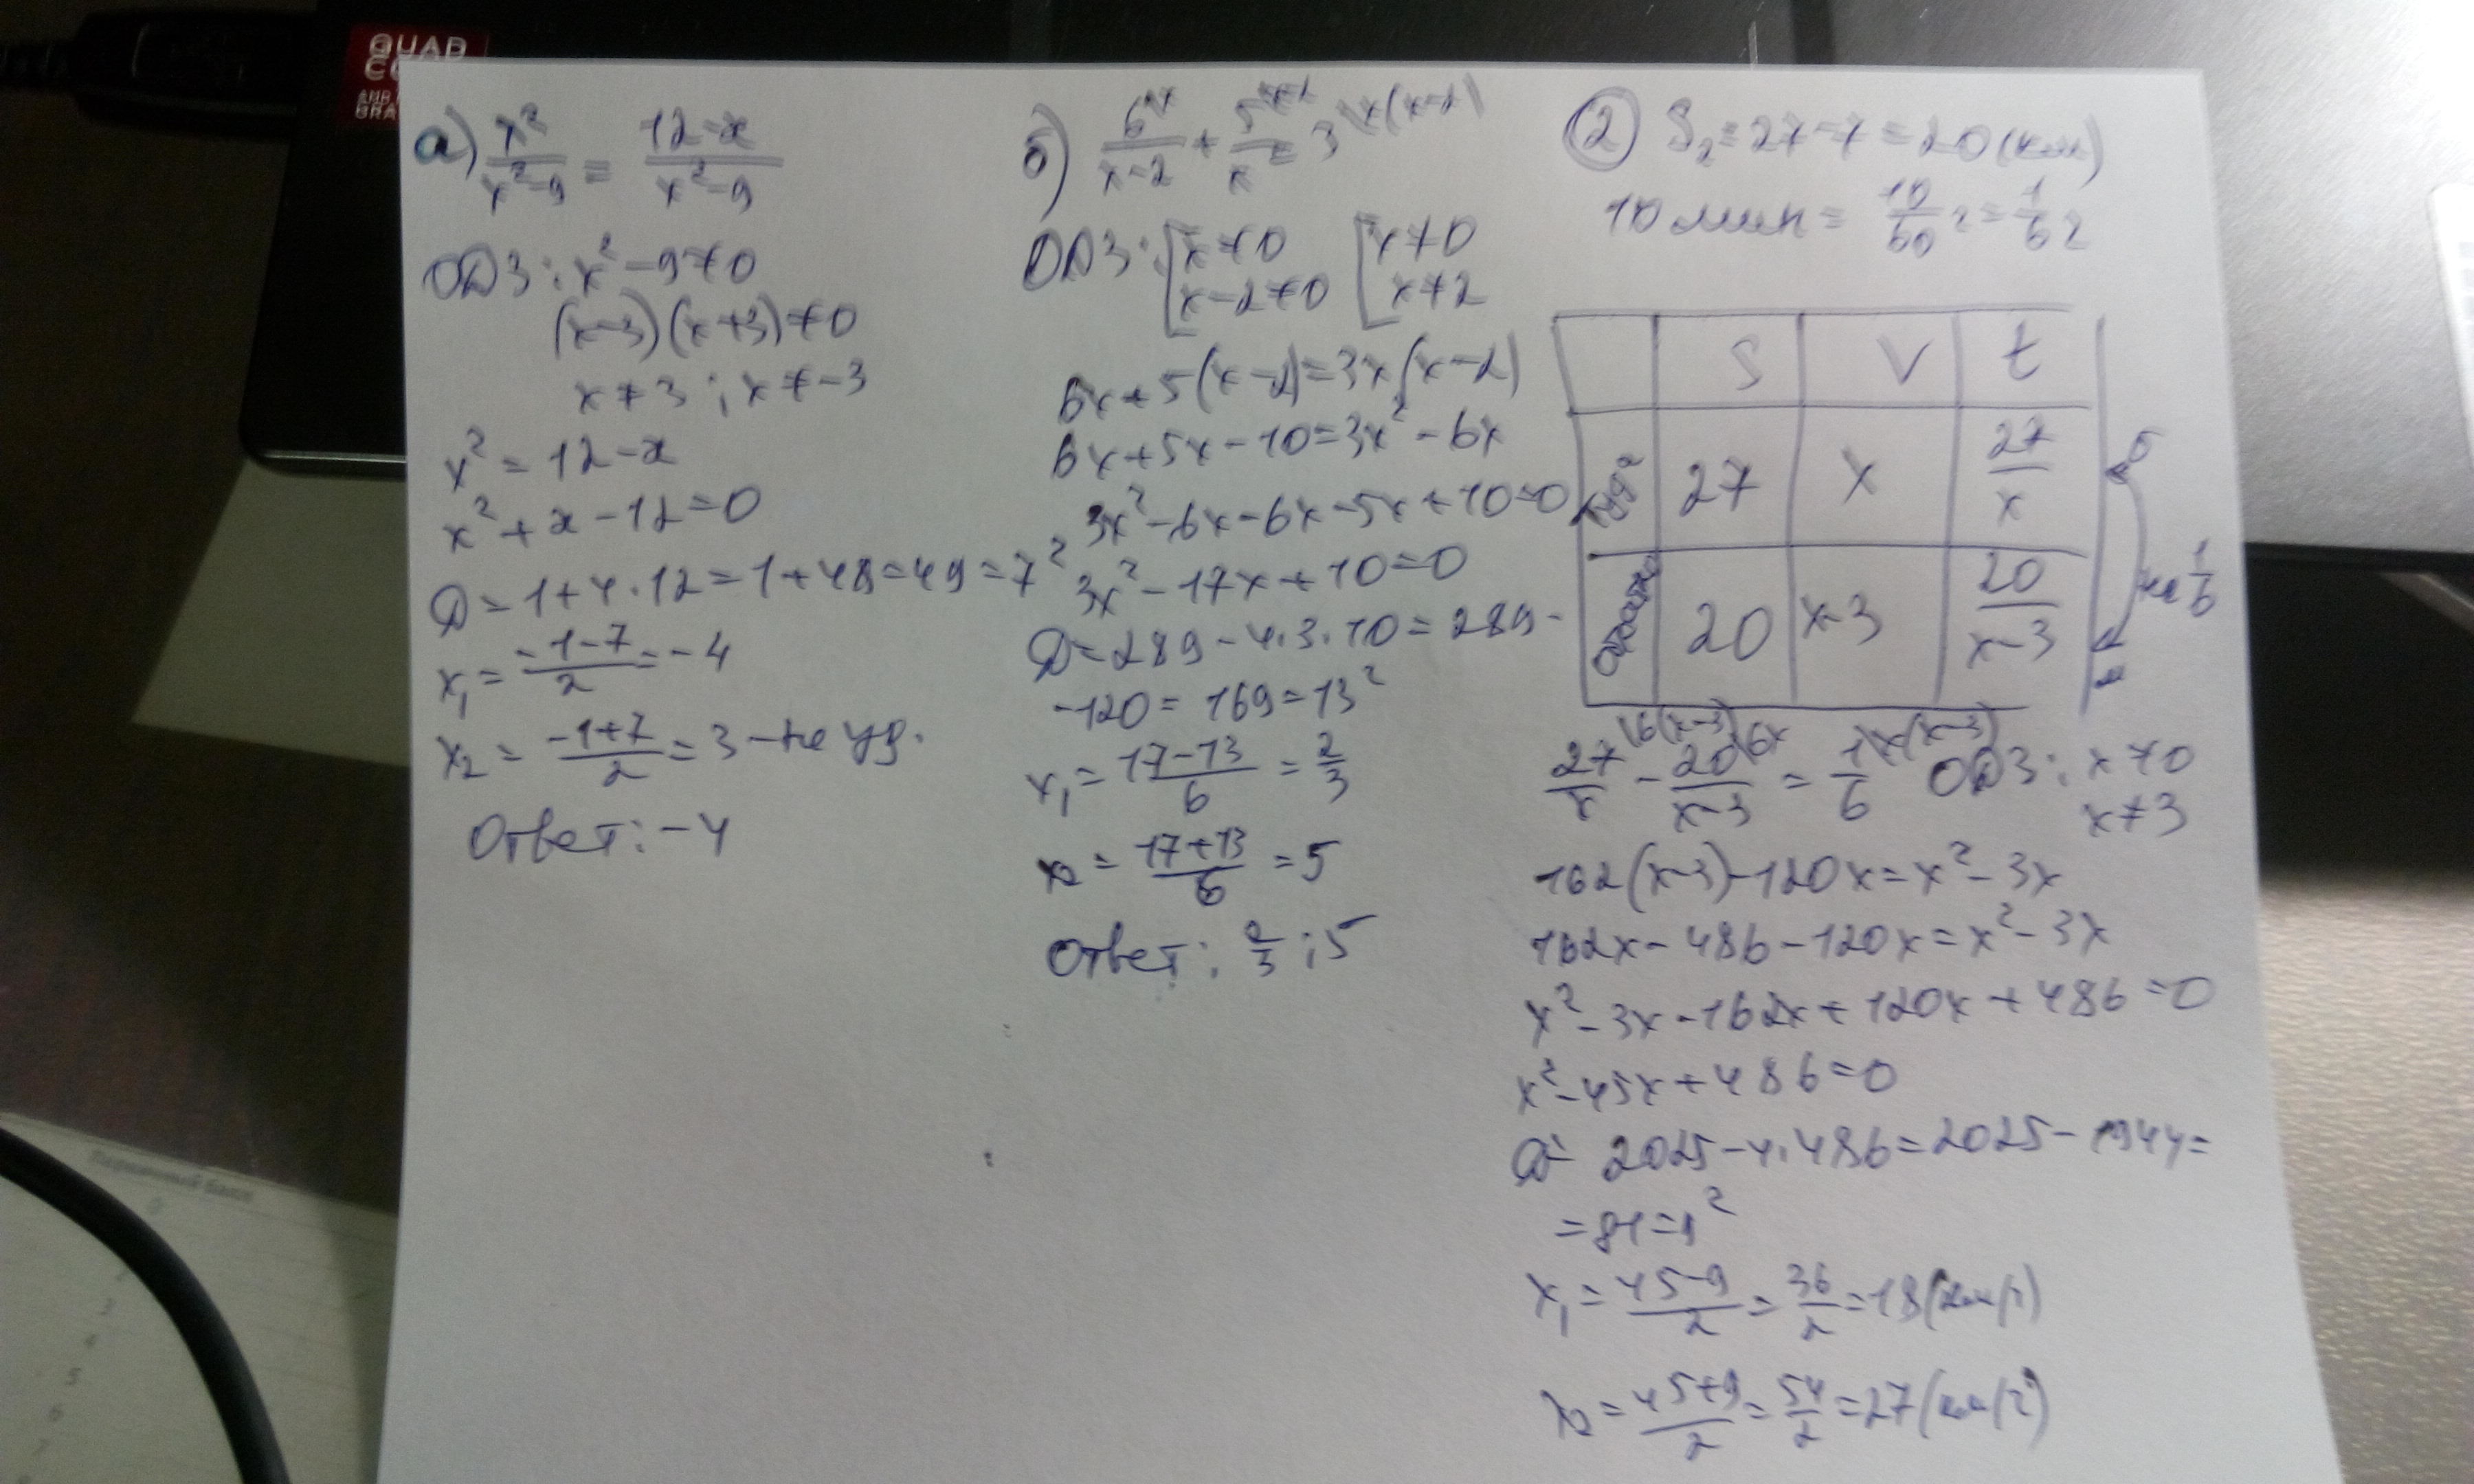 QUAD
а) x²/(x²-9) = (12-x)/(x²-9)
ОДЗ: x²-9≠0
(x-3)(x+3)≠0
x≠3; x≠-3
x²=12-x
x²+x-12=0
D=1+4·12=1+48=49=7²
x₁=(-1-7)/2=-4
x₂=(-1+7)/2=3-не уд.
Ответ: -4
б) 6\x/(x-2) + 5\x-2/x = 3\x(x-2)
ОДЗ: [x≠0 [x≠0
[x-2≠0 [x≠2
6x+5(x-2)=3x(x-2)
6x+5x-10=3x²-6x
3x²-6x-6x-5x+10=0
3x²-17x+10=0
D=289-4·3·10=289-
-120=169=13²
x₁=(17-13)/6=2/3
x₂=(17+13)/6=5
Ответ: 2/3; 5
② S₂=27-7=20(км)
10 мин=10/60 ч=1/6 ч
S V t
Туда 27 x 27/x б
на 1/6
Обратно 20 x-3 20/(x-3) м
27/x\6(x-3) - 20/(x-3)\6x = 1/6\x(x-3) ОДЗ: x≠0
x≠3
162(x-3)-120x=x²-3x
162x-486-120x=x²-3x
x²-3x-162x+120x+486=0
x²-45x+486=0
D=2025-4·486=2025-1944=
=81=9²
x₁=(45-9)/2=36/2=18(км/ч)
x₂=(45+9)/2=54/2=27(км/ч)
Первичный балл
0
3
4
5
6
7